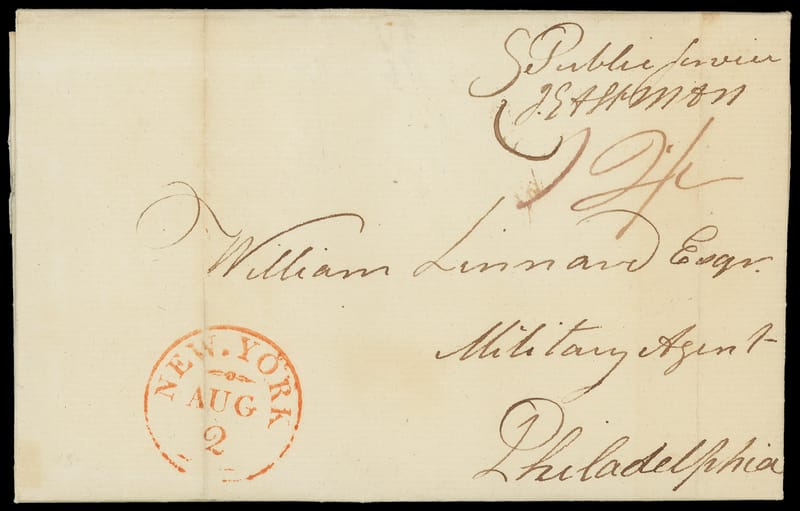 Public Service
J. EAStMAN
24
William Linnard Esqr.
Military Agent
Philadelphia
NEW.YORK
AUG
2